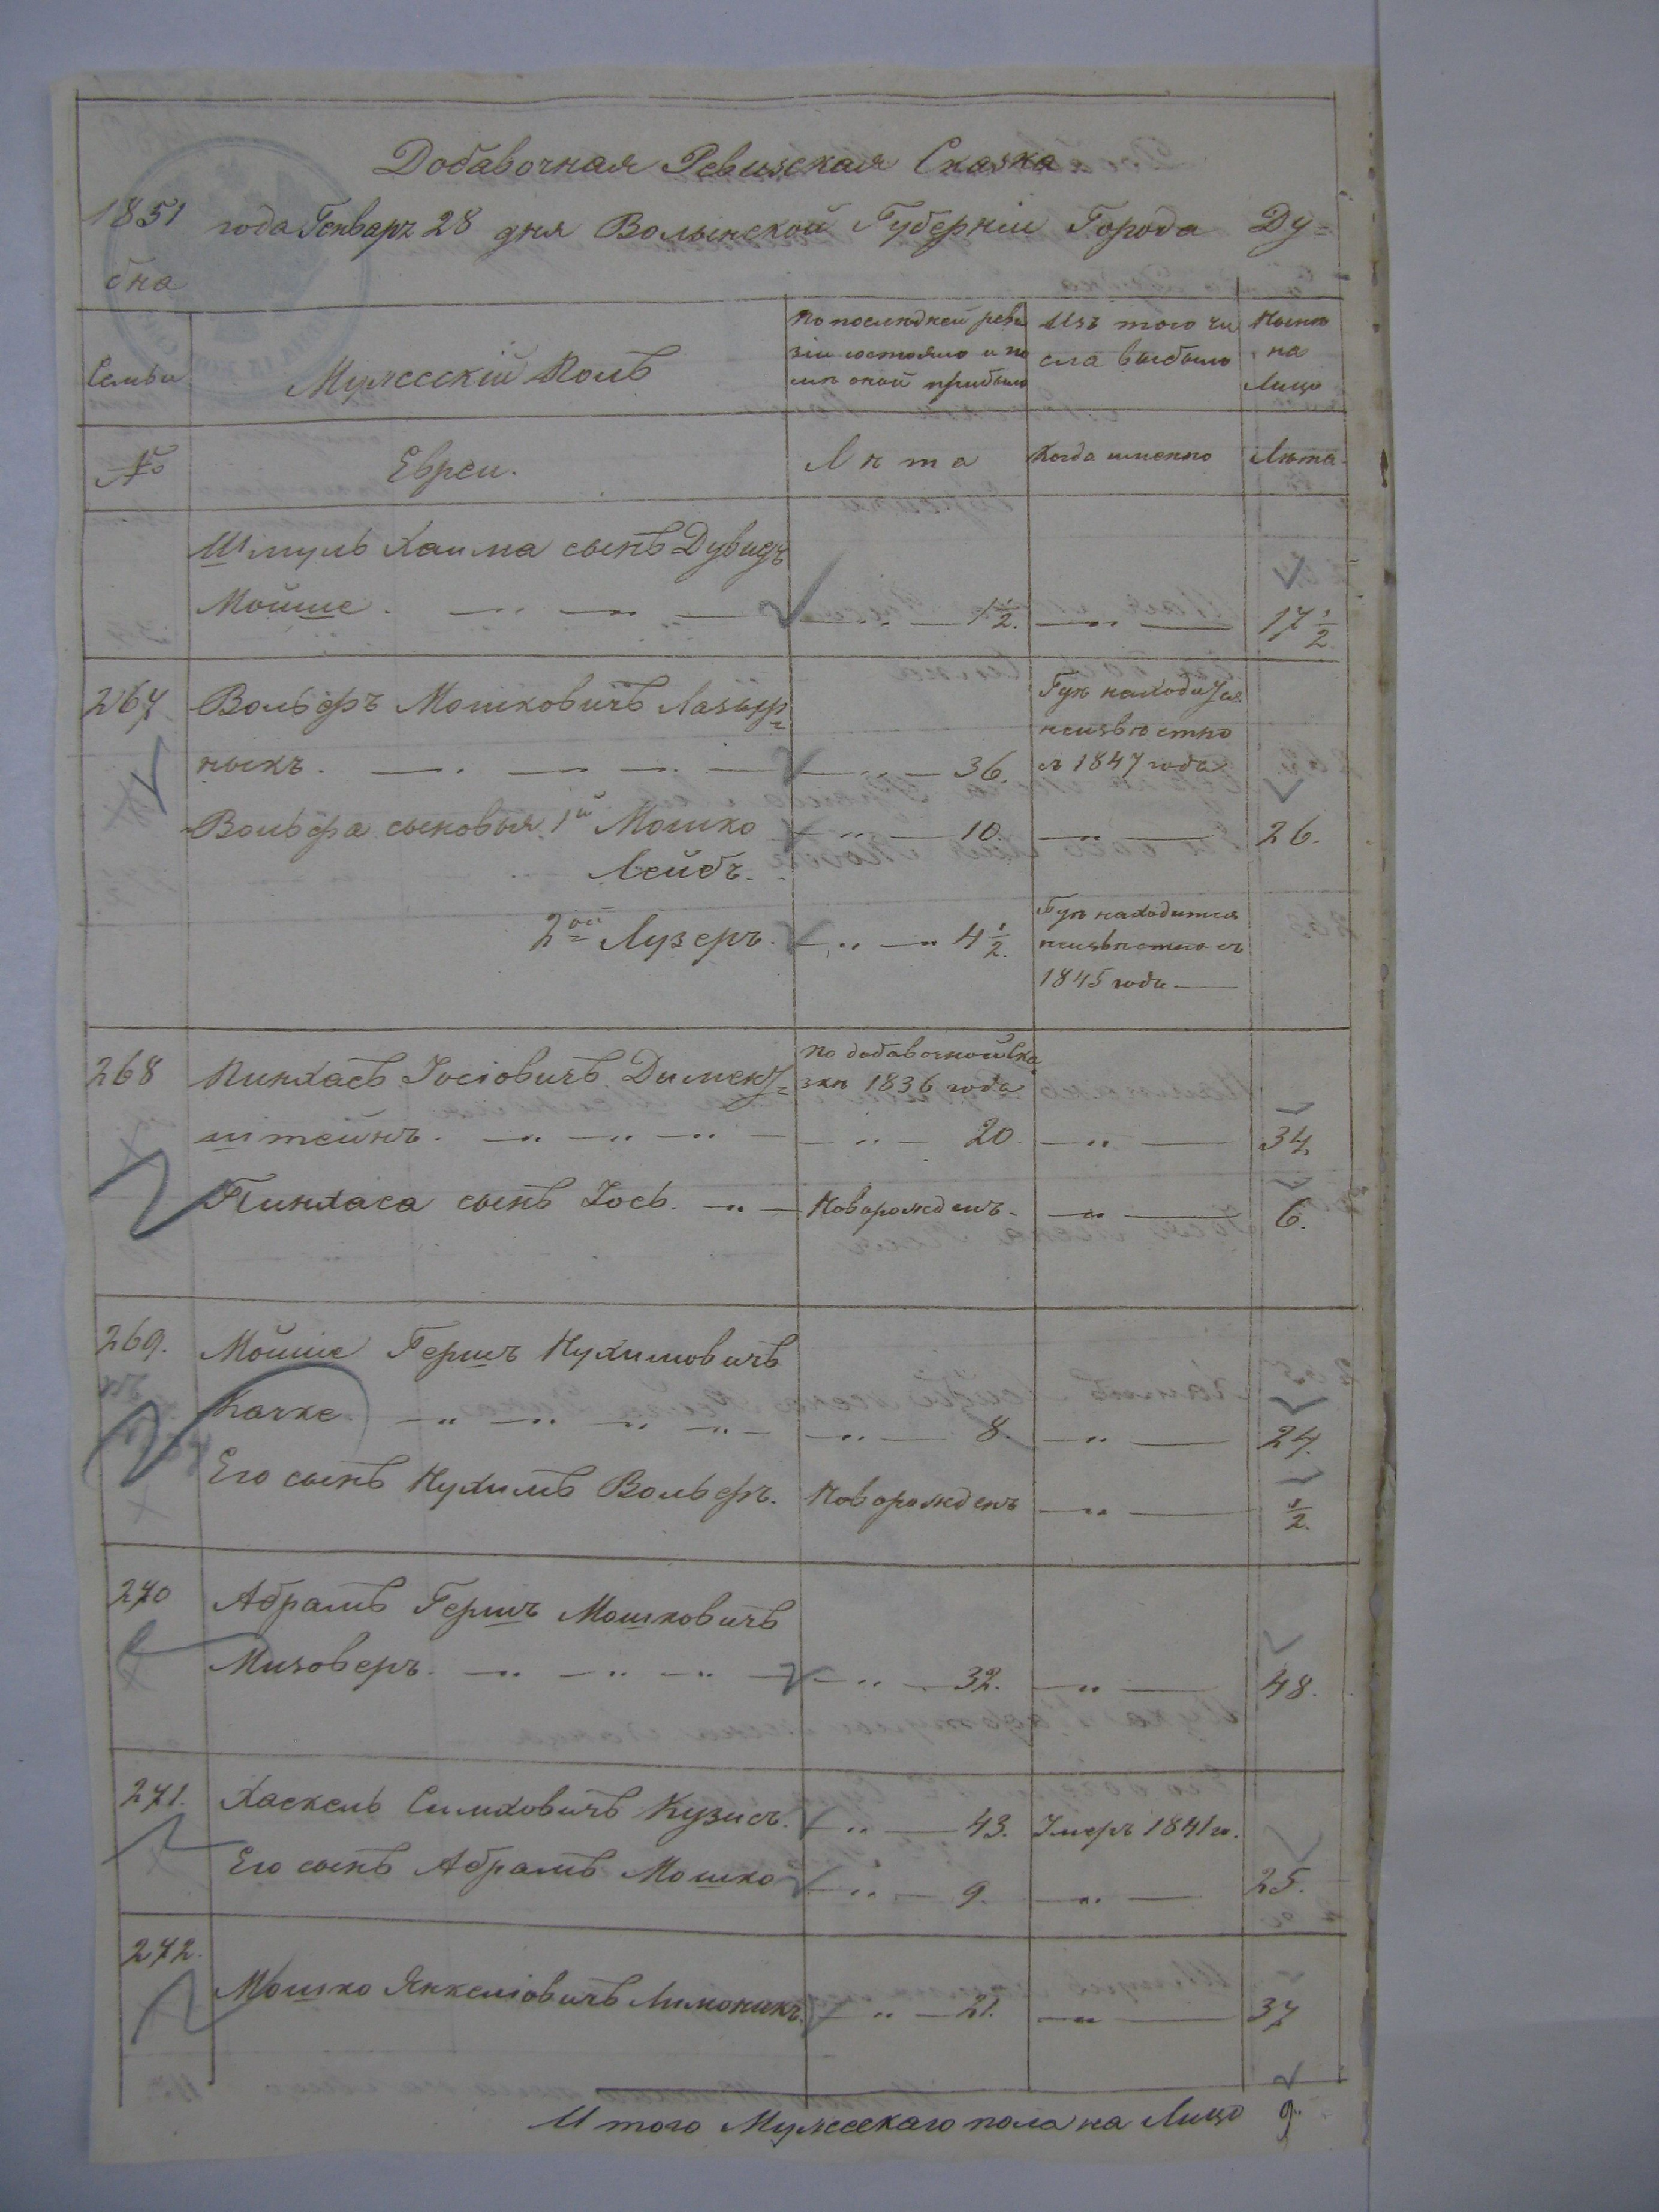 Добавочная Ревизская Сказка
1851 года Генваръ 28 дня Волынской Губерніи Города Ду=
бна
Семьи
Мужескій Полъ
По последней реви
зіи состояло и по
слѣ оной прибыло
Изъ того чи
сла выбыло
Нынѣ
на
Лицо
№
Евреи.
Лѣта
Когда именно
Лѣта.
Шмуль Хаима сынъ Дувидъ
Мойше. 1½. 17½.
267 Вольфъ Мошковичъ Лазыр=
ныкъ. 36.
Гдѣ находится
неизвѣстно
съ 1847 года
Вольфа сыновья 1й Мошко 10. 26.
Лейбъ.
2ой Лузеръ. 4½.
Гдѣ находится
неизвѣстно съ
1845 года
268 Пинхасъ Іосіовичъ Димент=
штейнъ. 20. 34.
По добавочной ска
зкѣ 1836 года
Пинхаса сынъ Іось. Новорожденъ. 6.
269. Мойше Гершъ Нухимовичъ
Качке 8. 24.
Его сынъ Нухимъ Вольфъ. Новорожденъ ½.
270 Абрамъ Гершъ Мошковичъ
Мизоверъ. 32. 48.
271. Хаскель Симховичъ Кузисъ. 43. Умеръ 1841 го.
Его сынъ Абрамъ Мошко 9. 25.
272.
Мошко Янкеліовичъ Лимоникъ. 21. 37
Итого Мужескаго пола на Лицо 9